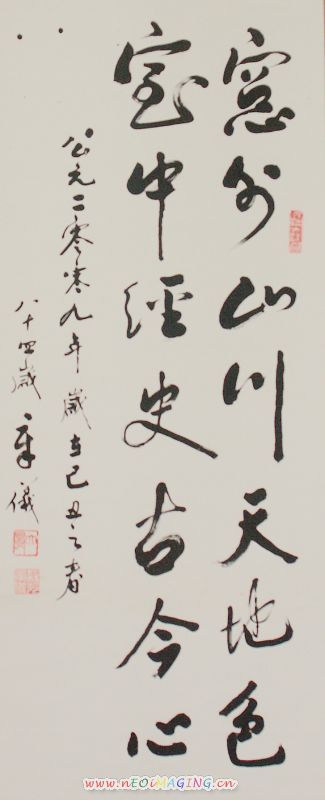 窓外山川天地色
室中經史古今心
公元二零零九年歲在己丑之春
八十四歲章儀
www.nEOiMAGING.cn